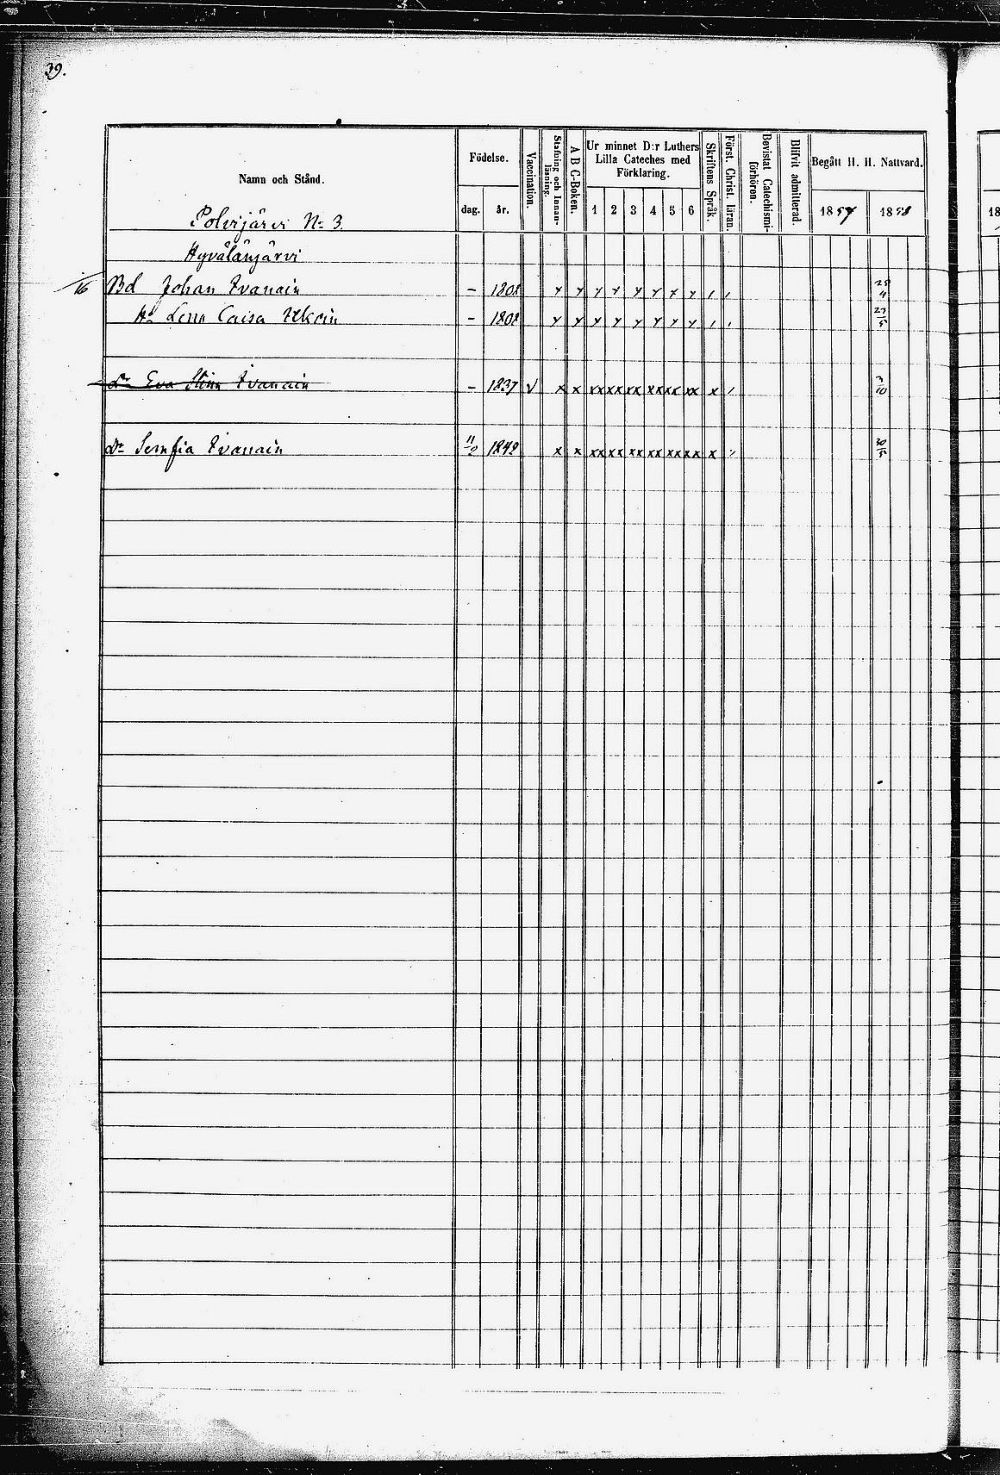 29.
Namn och Stånd. Födelse. dag. år. Vaccination. Stafning och Innanläsning. A B C-Boken. Ur minnet D:r Luthers Lilla Cateches med Förklaring. 1 2 3 4 5 6 Skriftens Språk. Först. Christi läran. Bevistat Catechismiförhören. Blifvit admitterad. Begått H. H. Nattvard. 1857 1858
Polvijärvi No 3.
Hyvälänjärvi
16 Bd Johan Ivanain - 1802 28/4
Hu Lena Caisa - 1802 27/5
Dr Eva Stina Ivanain - 1837 v x x xx xx xx xx xx xx x 3/10
Dr Ivanain 1842 x x xx xx xx xx xx xx x 30/5
18